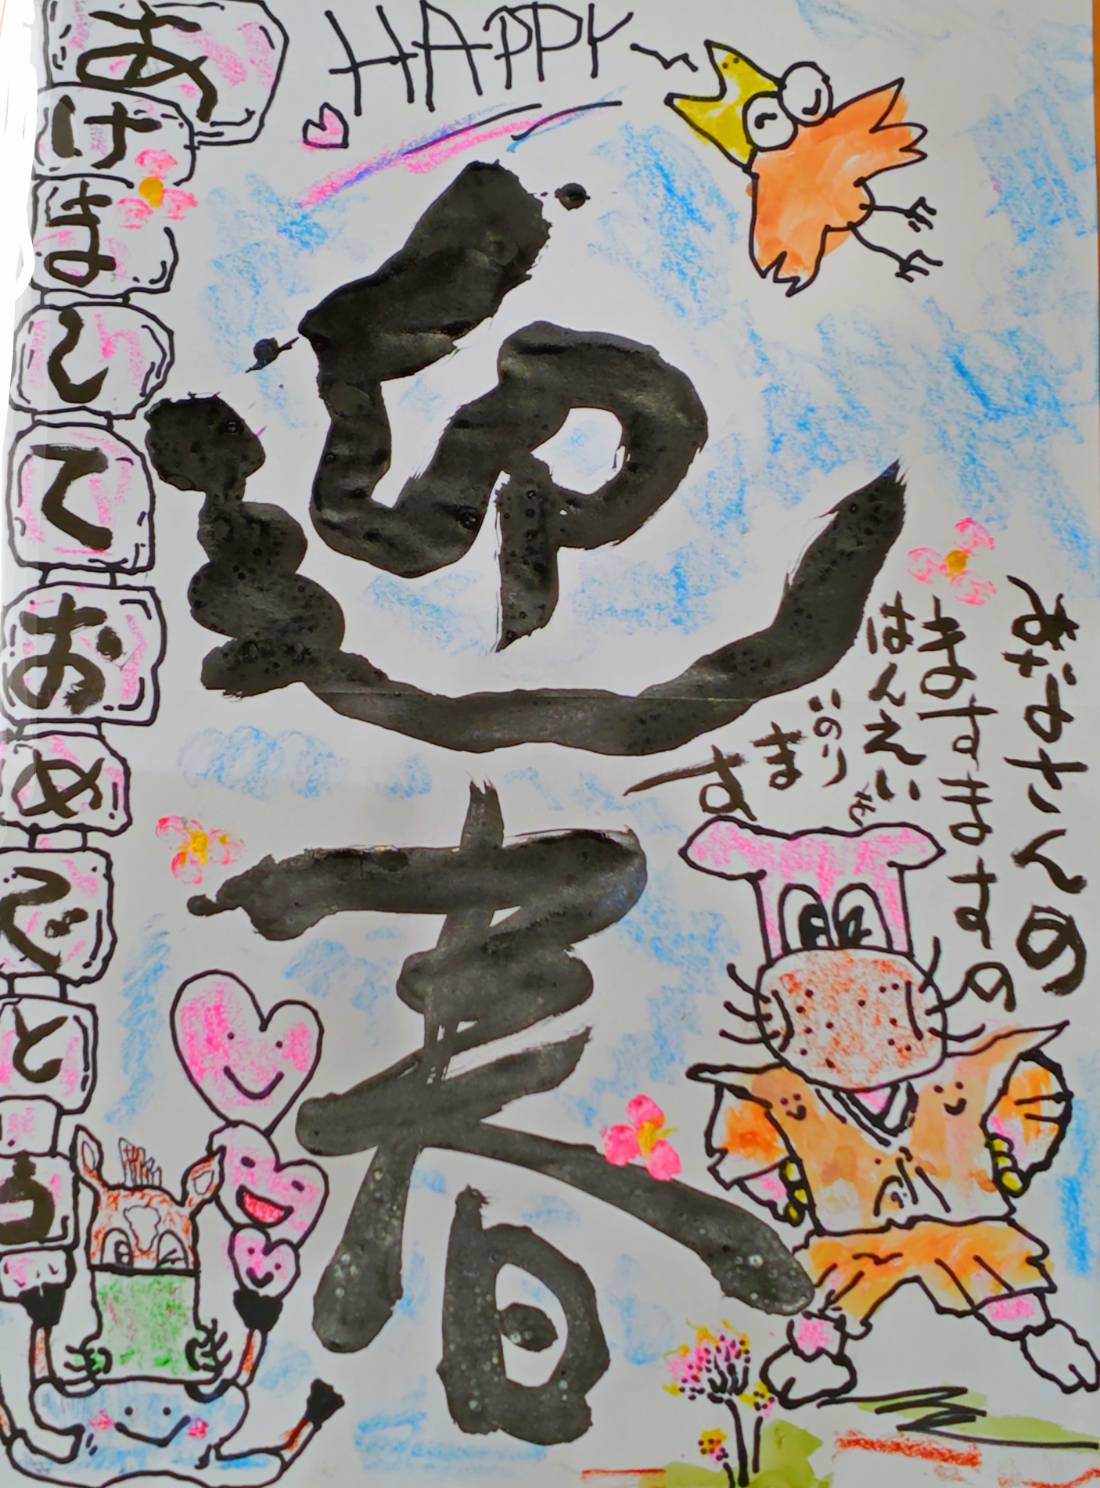 HAPPY〜
迎春
みなさんの
ますますの
はんえいを
いのり
ま
す
あけましておめでとう